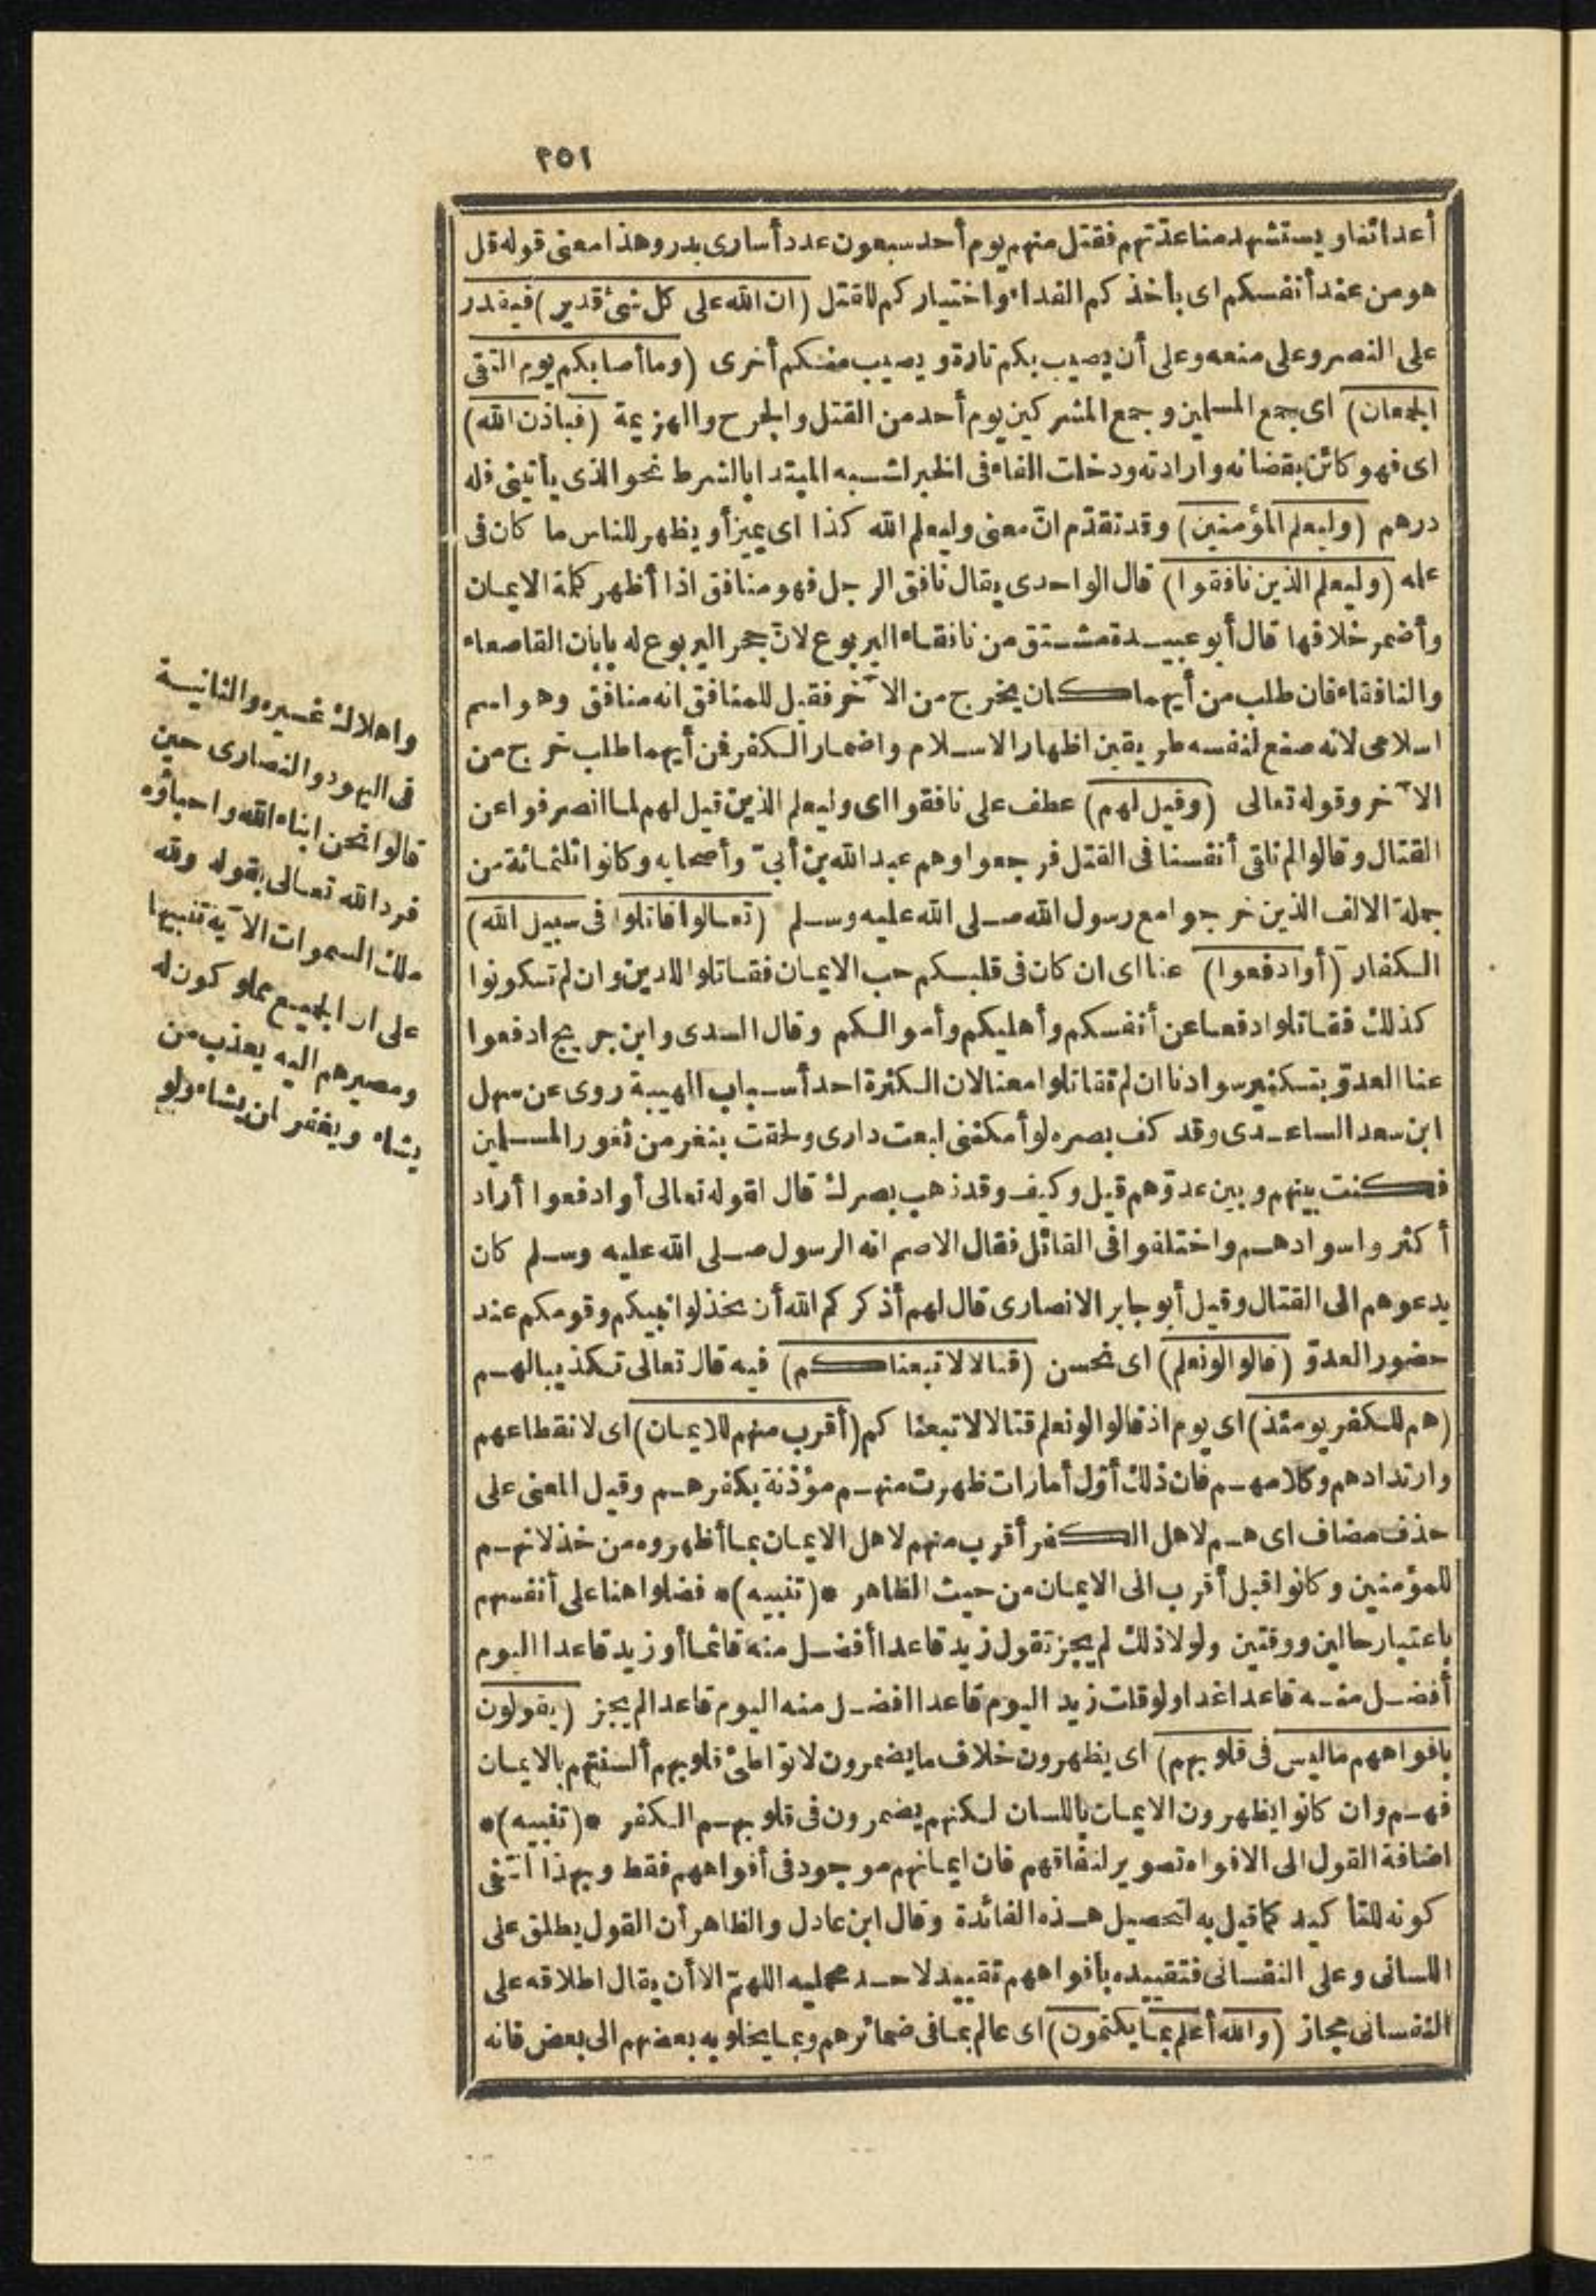 ٢٥١
أعدائنا ويستشهد منا عدّتهم فقتل منهم يوم أحد سبعون عدد أسارى بدر وهذا معنى قوله قل
هو من عند أنفسكم اى بأخذكم الفداء واختياركم للقتل (ان الله على كل شئ قدير) فيقدر
على النصر وعلى منعه وعلى أن يصيب بكم تارة ويصيب منكم أخرى (وما أصابكم يوم التقى
الجمعان) اى جمع المسلمين وجمع المشركين يوم أحد من القتل والجرح والهزيمة (فباذن الله)
اى فهو كائن بقضائه وارادته ودخلت الفاء فى الخبر لشبه المبتدا بالشرط نحو الذى يأتينى فله
درهم (وليعلم المؤمنين) وقد تقدّم انّ معنى وليعلم الله كذا اى يميز أو يظهر للناس ما كان فى
علمه (وليعلم الذين نافقوا) قال الواحدى يقال نافق الرجل فهو منافق اذا أظهر كلمة الايمان
وأضمر خلافها قال أبو عبيدة مشتق من نافقاء اليربوع لانّ جحر اليربوع له بابان القاصعاء
والنافقاء فان طلب من أيهما كان يخرج من الآخر فقيل للمنافق انه منافق وهو اسم
اسلامى لانه صنع لنفسه طريقين اظهار الاسلام واضمار الكفر فمن أيهما طلب خرج من
الآخر وقوله تعالى (وقيل لهم) عطف على نافقوا اى وليعلم الذين قيل لهم لما انصرفوا عن
القتال وقالوا لم نلقى أنفسنا فى القتل فرجعوا وهم عبد الله بن أبىّ وأصحابه وكانوا ثلثمائة من
جملة الالف الذين خرجوا مع رسول الله صلى الله عليه وسلم (تعالوا قاتلوا فى سبيل الله)
الكفار (أو ادفعوا) عنا اى ان كان فى قلبكم حب الايمان فقاتلوا للدين وان لم تكونوا
كذلك فقاتلوا دفعا عن أنفسكم وأهليكم وأموالكم وقال السدى وابن جريج ادفعوا
عنا العدوّ بتكثير سوادنا ان لم تقاتلوا معنا لان الكثرة احد أسباب الهيبة روى عن سهل
ابن سعد الساعدى وقد كف بصره لو أمكننى لبعت دارى ولحقت بثغر من ثغور المسلمين
فكنت بينهم وبين عدوّهم قيل وكيف وقد ذهب بصرك قال لقوله تعالى أو ادفعوا أراد
أكثروا سوادهم واختلفوا فى القائل فقال الاصم انه الرسول صلى الله عليه وسلم كان
يدعوهم الى القتال وقيل أبو جابر الانصارى قال لهم أذكركم الله أن تخذلوا نبيكم وقومكم عند
حضور العدوّ (قالوا لو نعلم) اى نحسن (قتالا لاتبعناكم) فيه قال تعالى تكذيبا لهم
(هم للكفر يومئذ) اى يوم اذ قالوا لو نعلم قتالا لاتبعناكم (أقرب منهم للايمان) اى لانقطاعهم
وارتدادهم وكلامهم فان ذلك أوّل أمارات ظهرت منهم مؤذنة بكفرهم وقيل المعنى على
حذف مضاف اى هم لاهل الكفر أقرب منهم لاهل الايمان بما أظهروه من خذلانهم
للمؤمنين وكانوا قبل أقرب الى الايمان من حيث الظاهر *(تنبيه)* فضلوا هنا على أنفسهم
باعتبار حالين ووقتين ولولا ذلك لم يجز تقول زيد قاعدا أفضل منه قائما أو زيد قاعدا اليوم
أفضل منه قاعدا غدا ولو قلت زيد اليوم قاعدا افضل منه اليوم قاعدا لم يجز (يقولون
بافواههم ما ليس فى قلوبهم) اى يظهرون خلاف ما يضمرون لا تواطئ قلوبهم ألسنتهم بالايمان
فهم وان كانوا يظهرون الايمان باللسان لكنهم يضمرون فى قلوبهم الكفر *(تنبيه)*
اضافة القول الى الافواه تصوير لنفاقهم فان ايمانهم موجود فى أفواههم فقط وبهذا انتفى
كونه للتأكيد كما قيل به لتحصيل هذه الفائدة وقال ابن عادل والظاهر أن القول يطلق على
اللسانى وعلى النفسانى فتقييده بأفواههم تقييد لاحد محمليه اللهمّ الا أن يقال اطلاقه على
النفسانى مجاز (والله أعلم بما يكتمون) اى عالم بما فى ضمائرهم وبما يخلو به بعضهم الى بعض فانه
واهلاك غيره والثانية
فى اليهود والنصارى حين
قالوا نحن ابناء الله واحباؤه
فرد الله تعالى بقوله ولله
ملك السموات الآية تنبيها
على ان الجميع مملوكون له
ومصيرهم اليه يعذب من
يشاء ويغفر لمن يشاء ولو